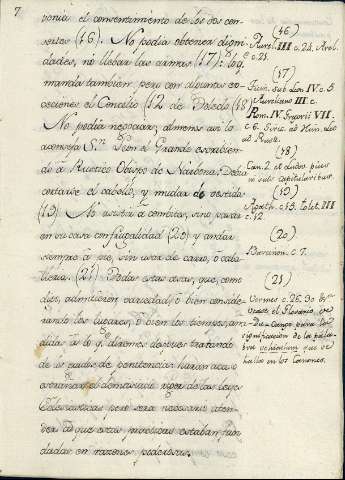 7
venia el consentimiento de los dos con-
sortes (16). No podia obtener digni-
dades, ni llebar las armas (17): lo q.e
manda tambien, pero con algunas ex-
ceciones el Concilio (12 de Toledo (18)
No podia negociar, almenos asi lo
aconseja S.n Leon el Grande escribien-
do à Rustico Obispo de Narbona: Devia
cortarse el cabello, y mudar de vestido
(19) No asistir à combites, sino parar
en su casa con frugalidad (20) y andar
siempre à pie, sin usar de carro, ò caba-
lleria. (21) Todas estas cosas, que, como
dije, admitieron variedad, ò bien conside-
rando los lugares, ò bien los tiempos, aña-
didas à lo q.e diremos despues tratando
de los grados de penitencia haran acaso
extrañar el demasiado rigor de las leyes
Eclesiasticas pero será necesario aten-
der à que estas practicas estaban fun-
dadas en razones poderosas.
(16)
Aurel. III c. 24. Arel.
c. 21.
(17)
c. 5
Aureliano III c.
Rom. IV. Gregorii VII.
c. 6.
ad Rust.
(18)
Can. 2
in suis capitularibus.
(19)
Agath. c. 15. tolet. III
c. 12.
(20)
c. 7.
(21)
Vormes c. 26. 30
vease el Glosario
Du Cange para la
significacion de la pala-
bra vehiculum que se
halla en los Canones.